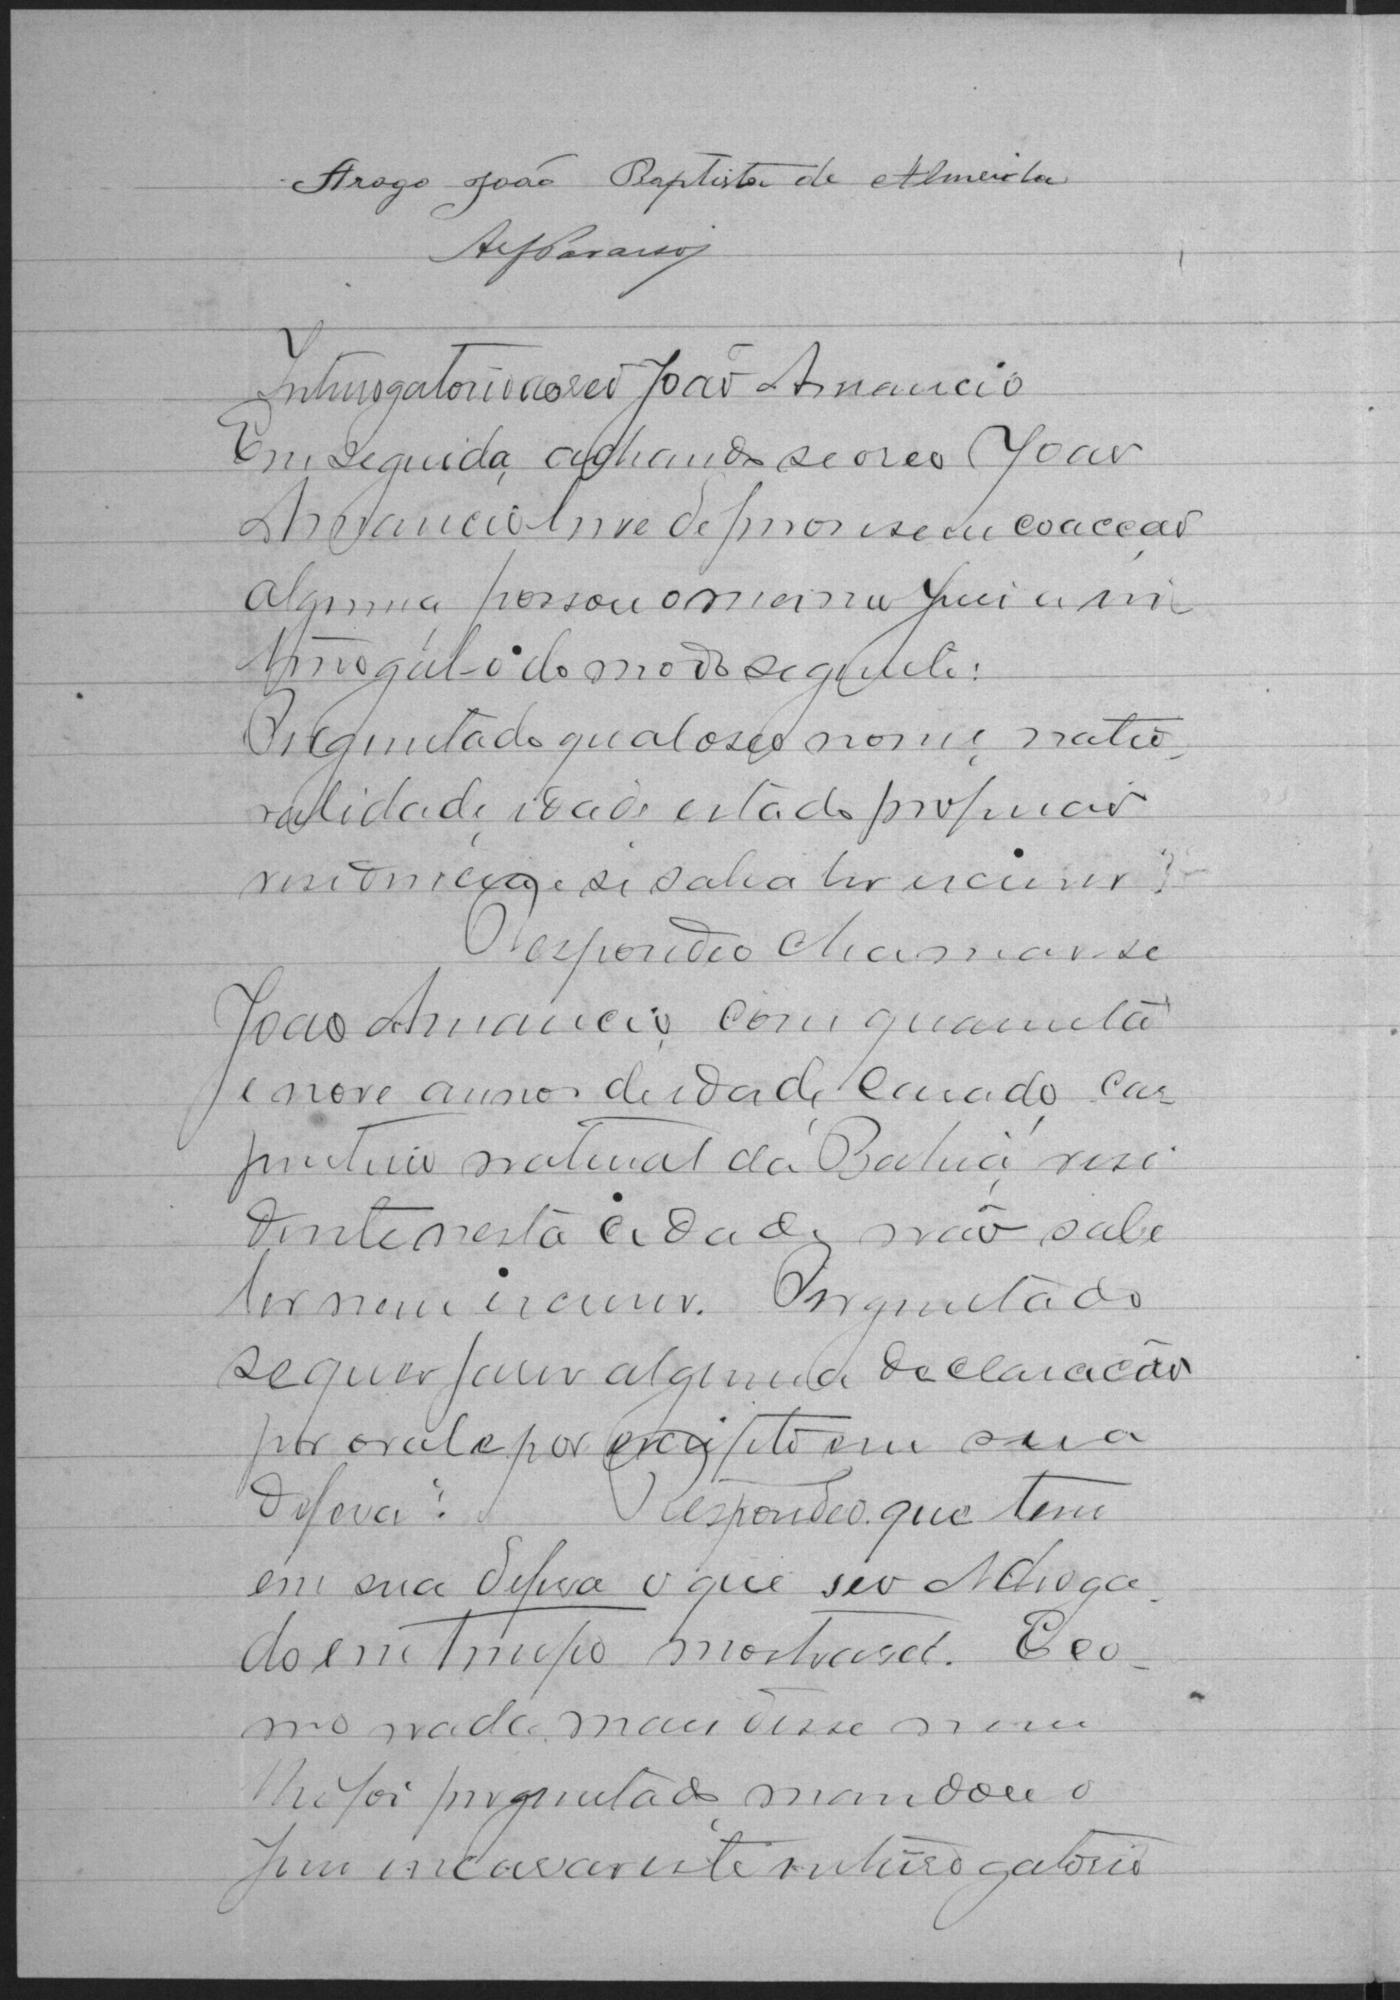 Arago João Baptista de Almeida
Interrogatorio ao reo João Amancio
Em seguida, achando se o reo Joao
Amancio livre de ferros e sem coacção
alguma, passou o mesmo Juiz a in
terrogal-o do modo seguinte:
Preguntado qual o seo nome, natio-
nalidade, idade, estado, profissão
residencia, e si sabia ler escrever?
Respondeo chamar-se
Joao Amancio, com quarenta
e nove annos de idade, casado, car
pinteiro natural da Bahia, resi
dente nesta cidade, não sabe
ler nem escrever. Perguntado
se quer faser alguma declaração
por oral e por escripto em sua
defesa? Respondeo que tem
em sua defesa o que seo Advoga-
do em tempo mostrará. E co-
mo nada mais disse nem
lhe foi perguntado, mandou o
Juiz encerrar este interrogatorio